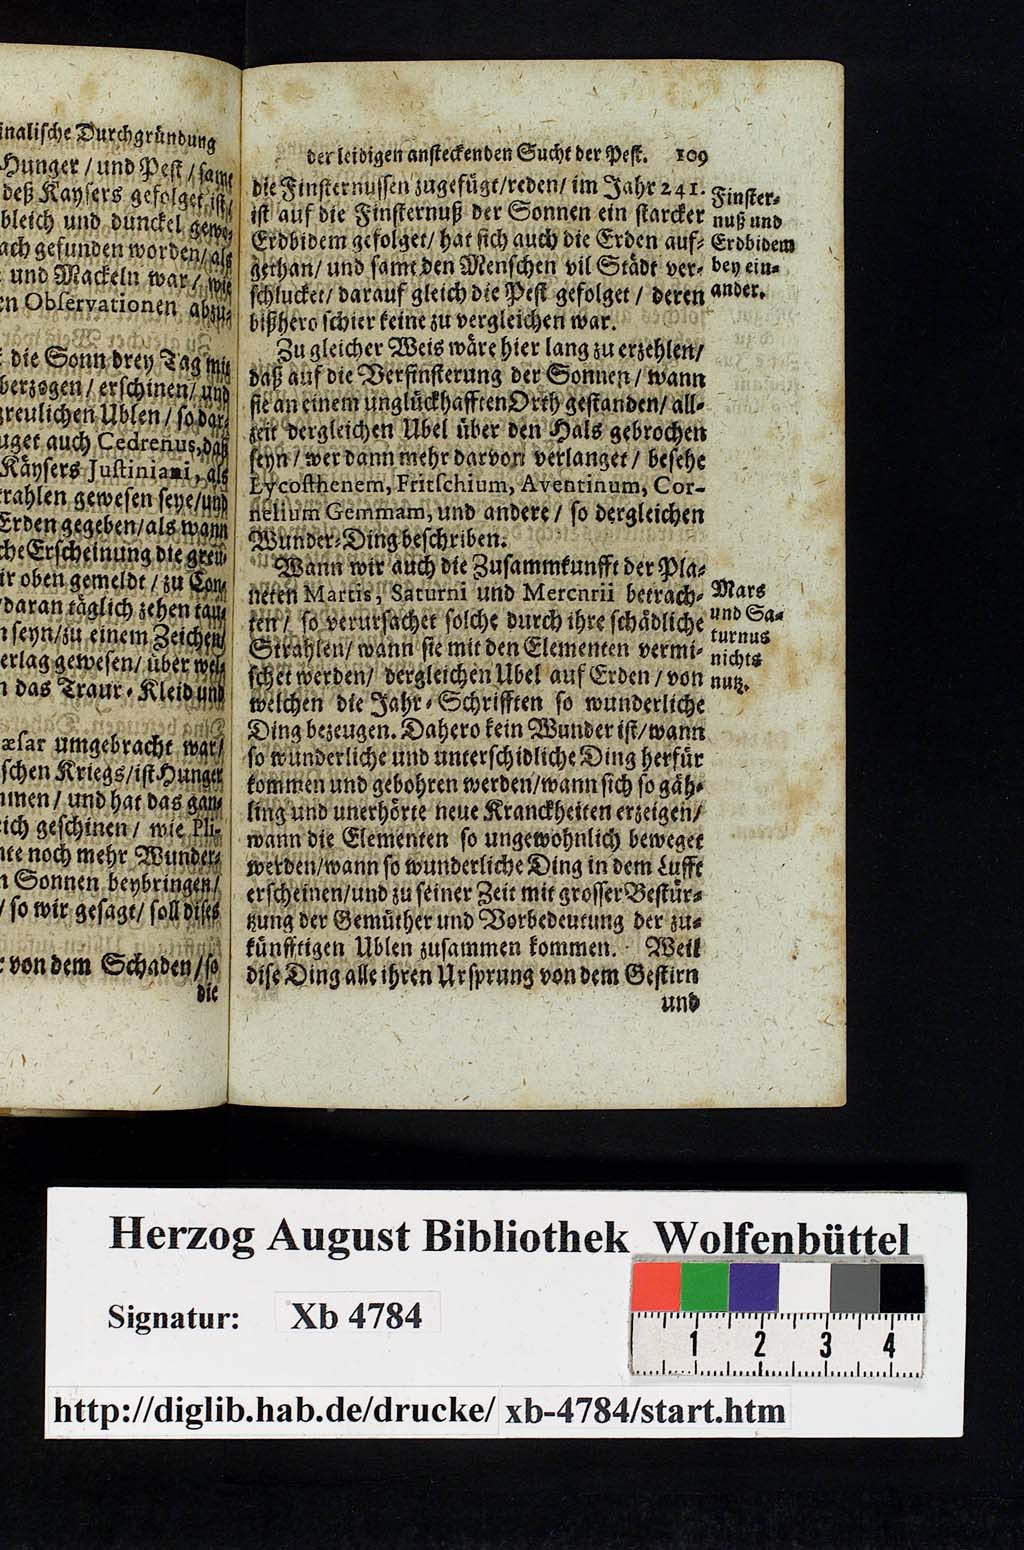 inalische Durchgründung
Hunger / und Pest / samt
deß Kaysers gefolget ist /
bleich und dunckel gewe-
ach gefunden worden / als
und Mackeln war / wie
en Observationen abzu-
die Sonn drey Tag mit
berzogen / erschinen / und
greulichen Ublen / so dar-
uget auch Cedrenus, daß
Käysers Justiniani, als
rahlen gewesen seye / und
Erden gegeben / als wann
che Erscheinung die greu-
ir oben gemeldt / zu Con-
daran täglich zehen tau-
n seyn / zu einem Zeichen /
erlag gewesen / über wel-
n das Traur-Kleid und
æsar umgebracht war /
schen Kriegs / ist Hunger
mmen / und hat das gan-
eich geschinen / wie Pli-
nte noch mehr Wunder-
n Sonnen beybringen /
/ so wir gesagt / soll dises
r von dem Schaden / so
die
der leidigen ansteckenden Sucht der Pest. 109
die Finsternussen zugefügt / reden / im Jahr 241.
ist auf die Finsternuß der Sonnen ein starcker
Erdbidem gefolget / hat sich auch die Erden auf-
gethan / und samt den Menschen vil Städt ver-
schlucket / darauf gleich die Pest gefolget / deren
bißhero schier keine zu vergleichen war.
Finster-
nuß und
Erdbidem
bey ein-
ander.
Zu gleicher Weis wäre hier lang zu erzehlen /
daß auf die Verfinsterung der Sonnen / wann
sie an einem unglückhafften Orth gestanden / all-
zeit dergleichen Ubel über den Hals gebrochen
seyn / wer dann mehr darvon verlanget / besehe
Lycosthenem, Fritschium, Aventinum, Cor-
nelium Gemmam, und andere / so dergleichen
Wunder-Ding beschriben.
Wann wir auch die Zusammkunfft der Pla-
neten Martis, Saturni und Mercnrii betrach-
ten / so verursachet solche durch ihre schädliche
Strahlen / wann sie mit den Elementen vermi-
schet werden / dergleichen Ubel auf Erden / von
welchen die Jahr-Schrifften so wunderliche
Ding bezeugen. Dahero kein Wunder ist / wann
so wunderliche und unterschidliche Ding herfür
kommen und gebohren werden / wann sich so gäh-
ling und unerhörte neue Kranckheiten erzeigen /
wann die Elementen so ungewohnlich beweget
werden / wann so wunderliche Ding in dem Lufft
erscheinen / und zu seiner Zeit mit grosser Bestür-
tzung der Gemüther und Vorbedeutung der zu-
künfftigen Ublen zusammen kommen. Weil
dise Ding alle ihren Ursprung von dem Gestirn
und
Mars
und Sa-
turnus
nichts
nutz.
Herzog August Bibliothek Wolfenbüttel
Signatur: Xb 4784
1 2 3 4
http://diglib.hab.de/drucke/ xb-4784/start.htm